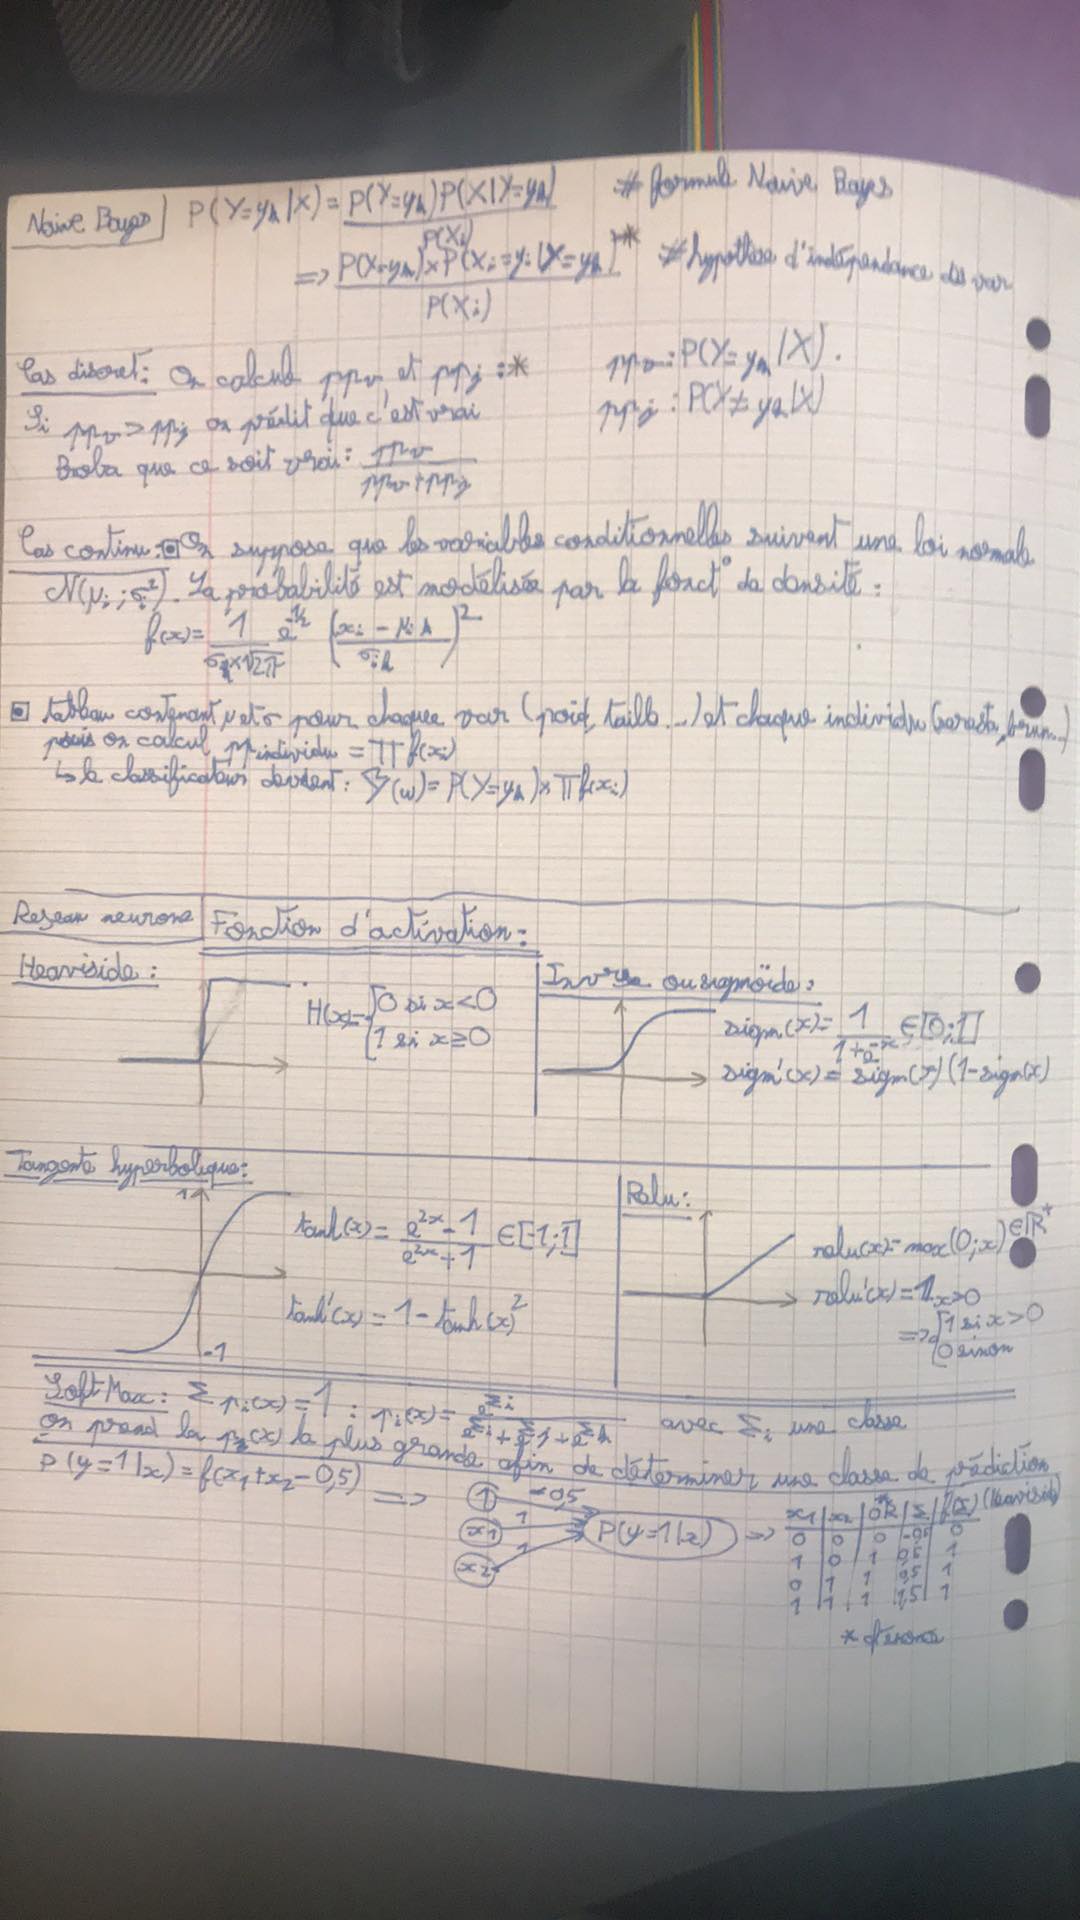 Naive Bayes | P(Y=yₖ|X) = P(Y=yₖ)P(X|Y=yₖ) / P(Xᵢ) # formule Naive Bayes
=> P(Y=yₖ)×P(Xᵢ=yᵢ|Y=yₖ) / P(Xᵢ) * # hypothèse d'indépendance des var
Cas discret: On calcul ppv et ppf :* ppv: P(Y=yₖ|X).
Si ppv > ppf on prédit que c'est vrai ppf : P(Y≠yₖ|X)
Proba que ce soit vrai: ppv / ppv+ppf
Cas continu: On suppose que les variables conditionnelles suivent une loi normale
N(μᵢ;σᵢ²). La probabilité est modélisée par la fonct° de densité:
f(x)= 1/(σᵢₖ×√2π) e^-1/2 ((xᵢ - μᵢₖ)/σᵢₖ)²
tableau contenant μ et σ pour chaque var (poid, taille ...) et chaque individu
puis on calcul ppindividu = Π f(xᵢ)
↳ le classificateur devient: (w)= P(Y=yₖ)×Π f(xᵢ)
Reseau neurone | Fonction d'activation:
Heaviside:
H(x)= {0 si x<0
1 si x≥0
Inverse ou sigmoïde:
sigm(x)= 1/(1+e^-x) ∈[0;1]
sigm'(x)= sigm(x)(1-sigm(x)
Tangente hyperbolique:
1
tanh(x)= (e^2x - 1)/(e^2x + 1) ∈[-1;1]
tanh'(x)= 1-tanh(x)²
-1
Relu:
relu(x)= max(0;x) ∈ℝ⁺
relu'(x)= 𝟙x>0
=> {1 si x>0
0 sinon
SoftMax: Σ pᵢ(x)=1 ; pᵢ(x)= e^Σi / (e^Σi + e^Σj + e^Σk) avec Σᵢ une classe
on prend la pᵢ(x) la plus grande afin de déterminer une classe de prédiction
P(y=1|x)= f(x₁+x₂-0,5) =>
1 -0,5
x₁ 1
x₂ 1
P(y=1|x) =>
x₁ | x₂ | OR* | Σ | f(Σ) (Heaviside)
0 | 0 | 0 | -0,5 | 0
1 | 0 | 1 | 0,5 | 1
0 | 1 | 1 | 0,5 | 1
1 | 1 | 1 | 1,5 | 1